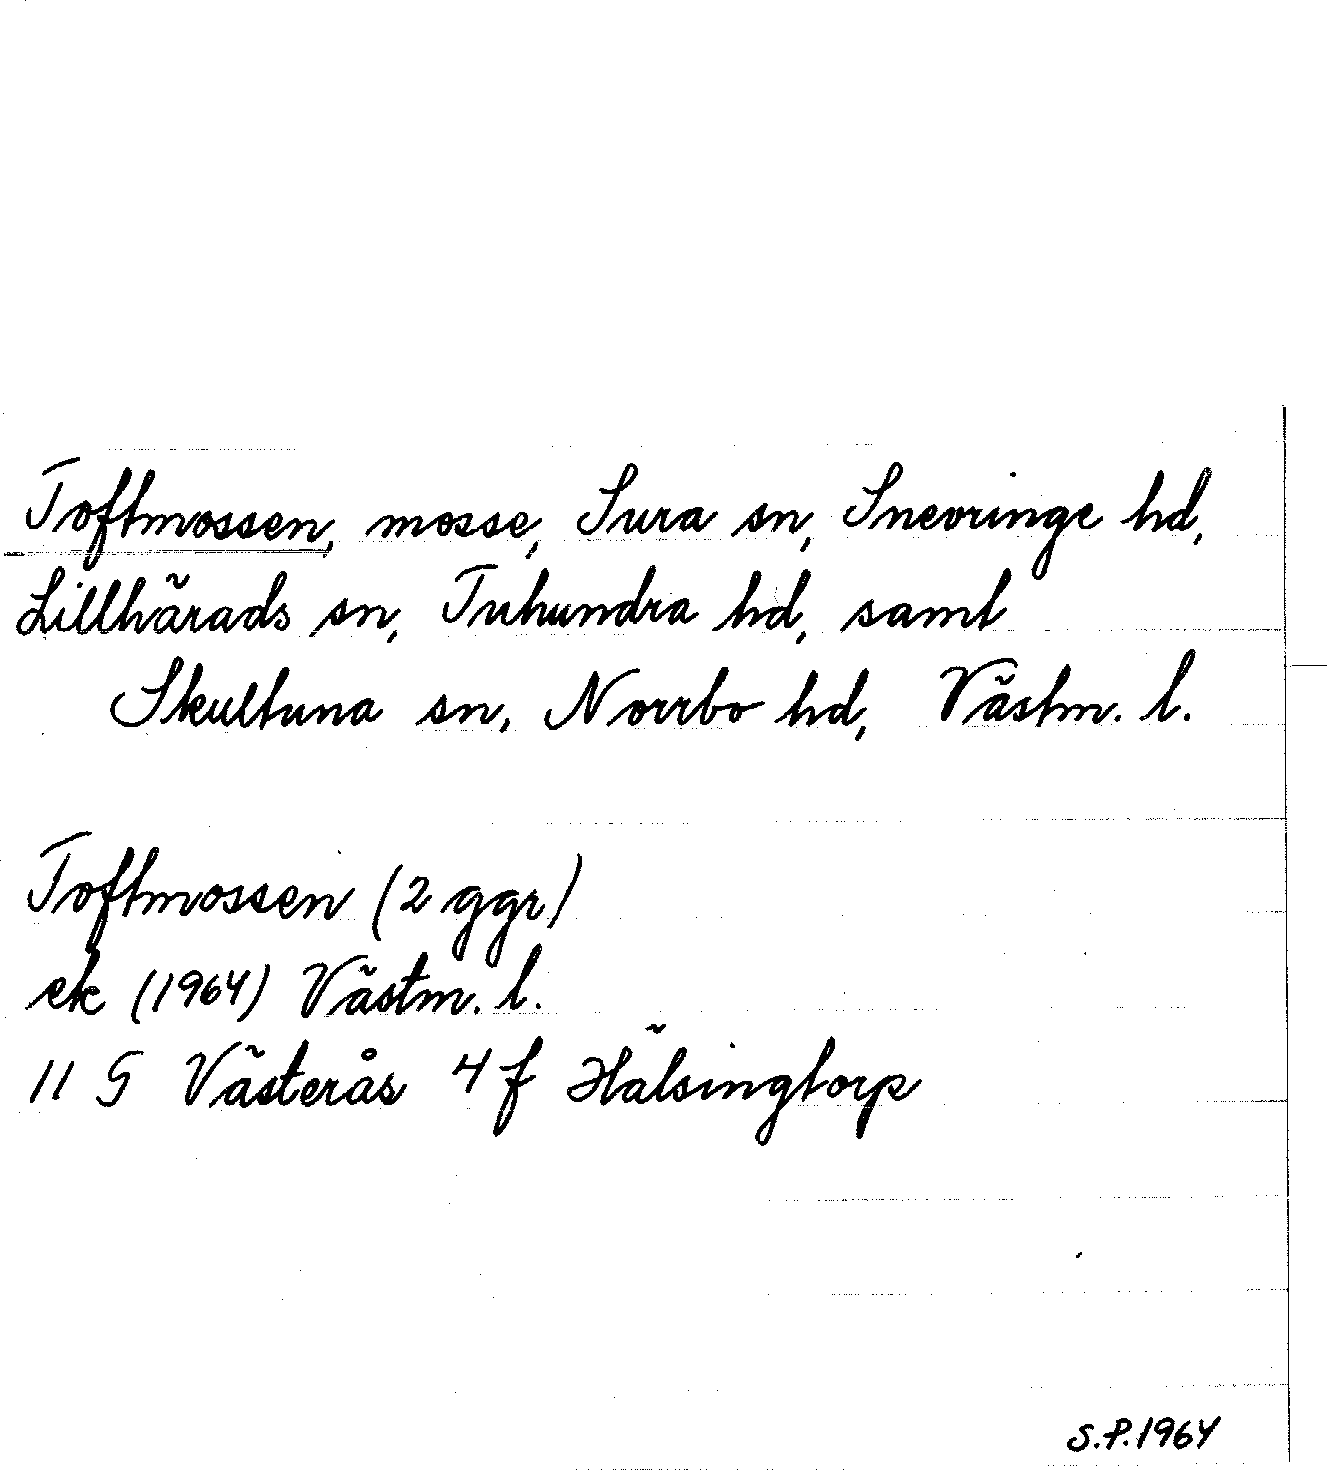 Toftmossen, mosse, Sura sn, Snevringe hd,
Lillhärads sn, Tuhundra hd, samt
Skultuna sn, Norrbo hd, Västm. l.
Toftmossen (2 ggr)
ek (1964) Västm. l.
11 G Västerås 4 f Hälsingtorp
S.P. 1964